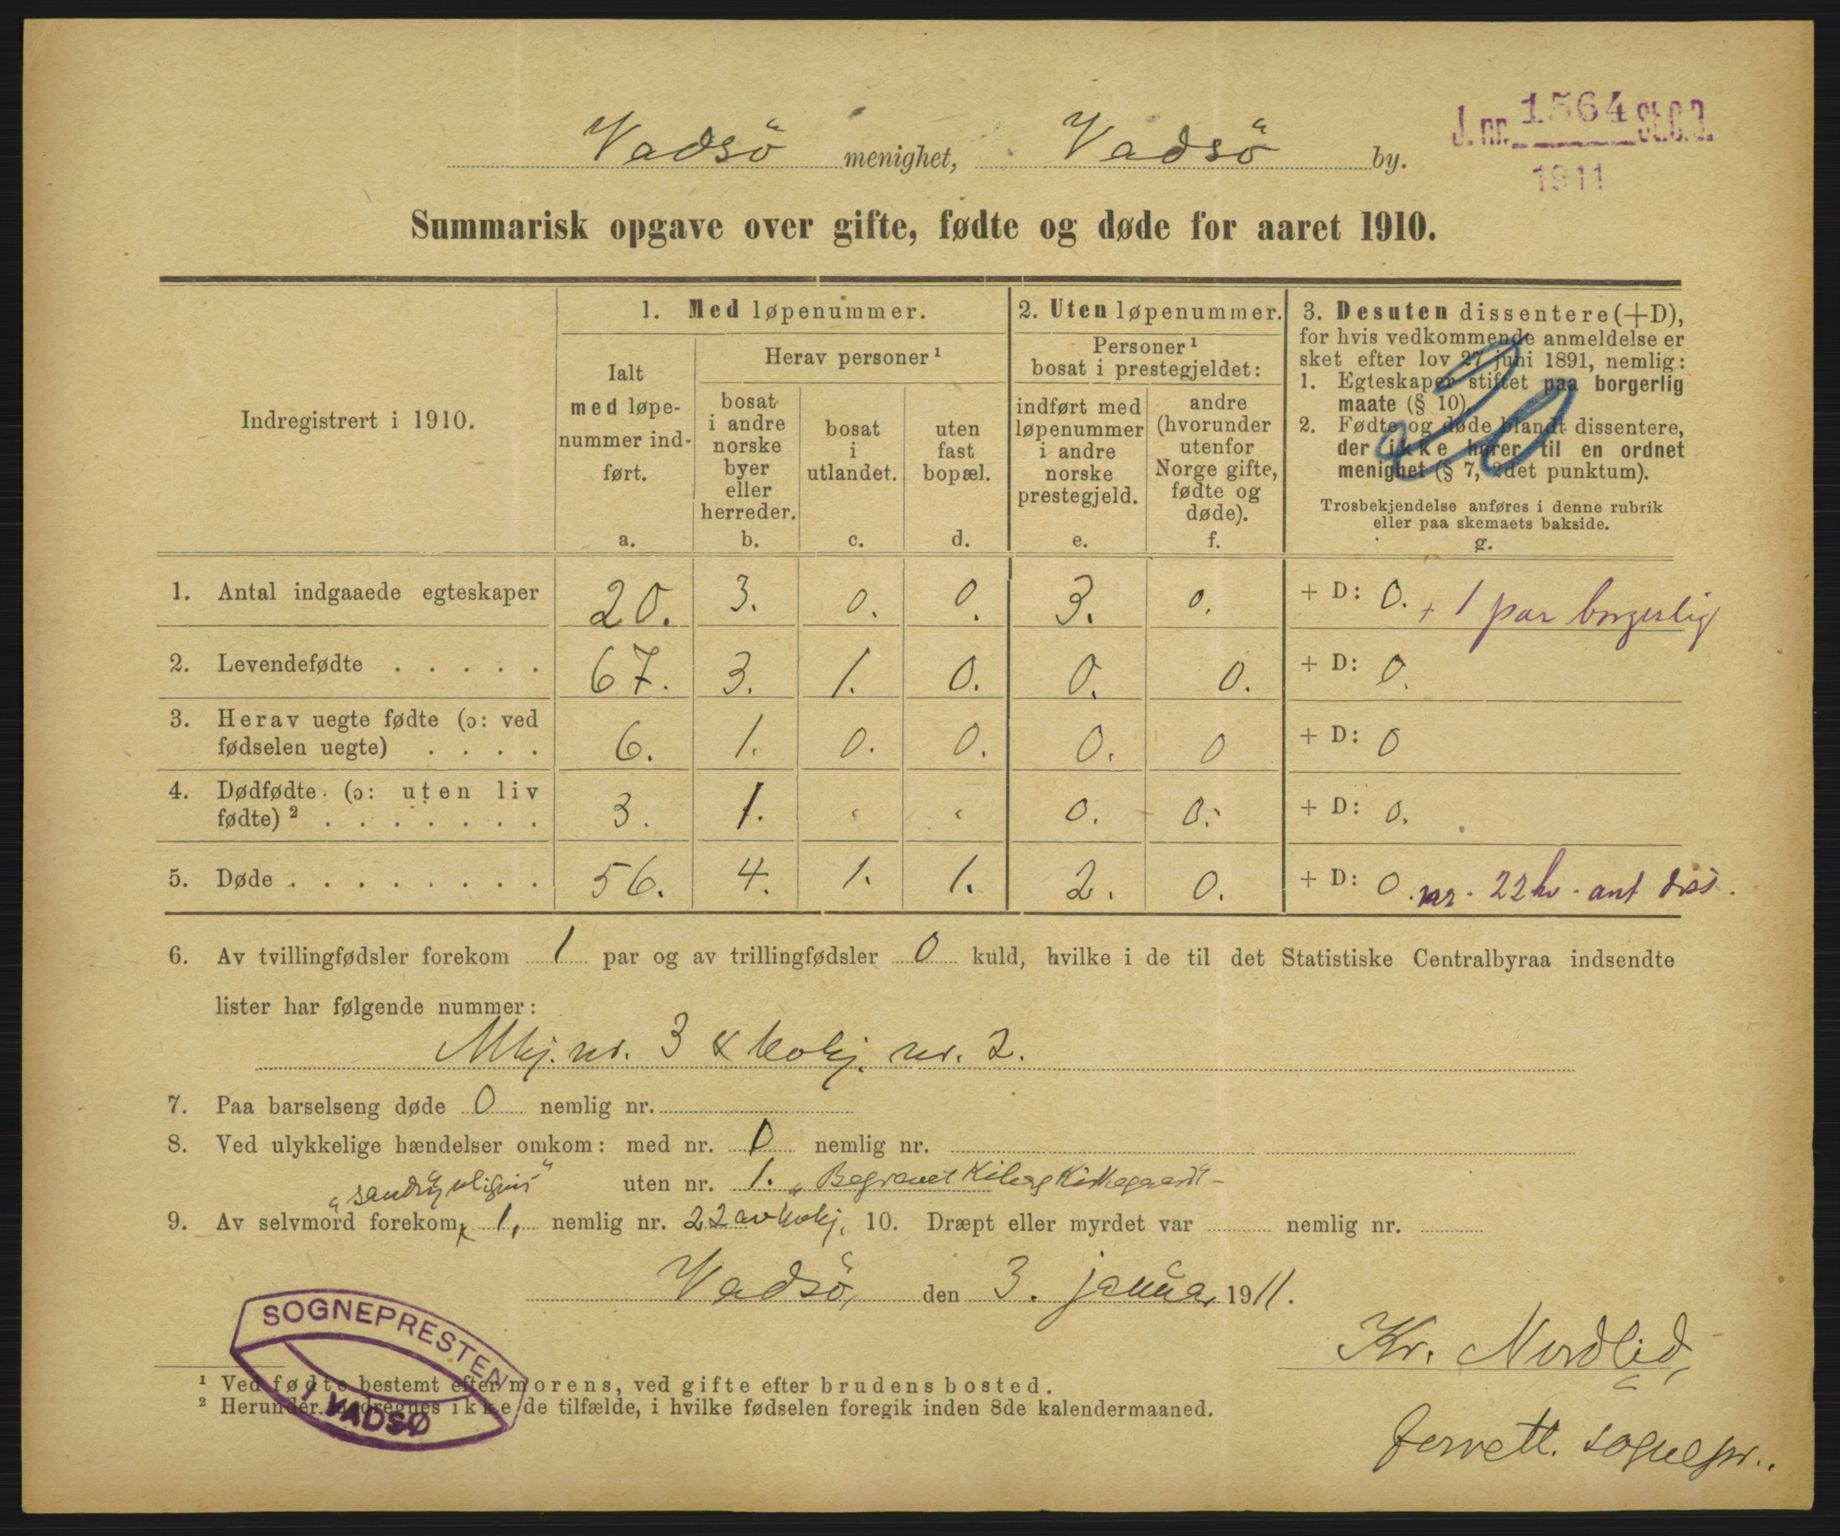 J. nr. 1564 St.C.B.
1911
Vadsö menighet, Vadsö by.
Summarisk opgave over gifte, fødte og døde for aaret 1910.
Indregistrert i 1910.
1. Med løpenummer.
Ialt
med løpe-
nummer ind-
ført.
a.
Herav personer ¹
bosat
i andre
norske
byer
eller
herreder.
b.
bosat
i
utlandet.
c.
uten
fast
bopæl.
d.
2. Uten løpenummer.
Personer ¹
bosat i prestegjeldet:
indført med
løpenummer
i andre
norske
prestegjeld.
e.
andre
(hvorunder
utenfor
Norge gifte,
fødte og
døde).
f.
3. Desuten dissentere (+D),
for hvis vedkommende anmeldelse er
sket efter lov 27 juni 1891, nemlig:
1. Egteskaper stiftet paa borgerlig
maate (§ 10).
2. Fødte og døde blandt dissentere,
der ikke hører til en ordnet
menighet (§ 7, 2det punktum).
Trosbekjendelse anføres i denne rubrik
eller paa skemaets bakside.
g.
20
1. Antal indgaaede egteskaper 20. 3. 0. 0. 3. 0. + D: 0. + 1 par borgerlig
2. Levendefødte . . . . . 67. 3. 1. 0. 0. 0. + D: 0.
3. Herav uegte fødte (ɔ: ved
fødselen uegte) . . . . 6. 1. 0. 0. 0. 0 + D: 0
4. Dødfødte (ɔ: uten liv
fødte) ² . . . . . . . 3. 1. " " 0. 0. + D: 0.
5. Døde . . . . . . . . 56. 4. 1. 1. 2. 0. + D: 0. nr. 22 kv. ant diss.
6. Av tvillingfødsler forekom 1 par og av trillingfødsler 0 kuld, hvilke i de til det Statistiske Centralbyraa indsendte
lister har følgende nummer:
Mkj. nr. 3 & kvkj. nr. 2.
7. Paa barselseng døde 0 nemlig nr.
8. Ved ulykkelige hændelser omkom: med nr. 0 nemlig nr.
uten nr. 1. „Begravet Kiberg Kirkegaard"
„sandsynligvis"
9. Av selvmord forekom 1, nemlig nr. 22 av kvkj. 10. Dræpt eller myrdet var nemlig nr.
Vadsö, den 3. januar 1911.
Kr. Nordlid,
forrett. sognepr..
SOGNEPRESTEN
I VADSØ
¹ Ved fødte bestemt efter morens, ved gifte efter brudens bosted.
² Herunder medregnes ikke de tilfælde, i hvilke fødselen foregik inden 8de kalendermaaned.